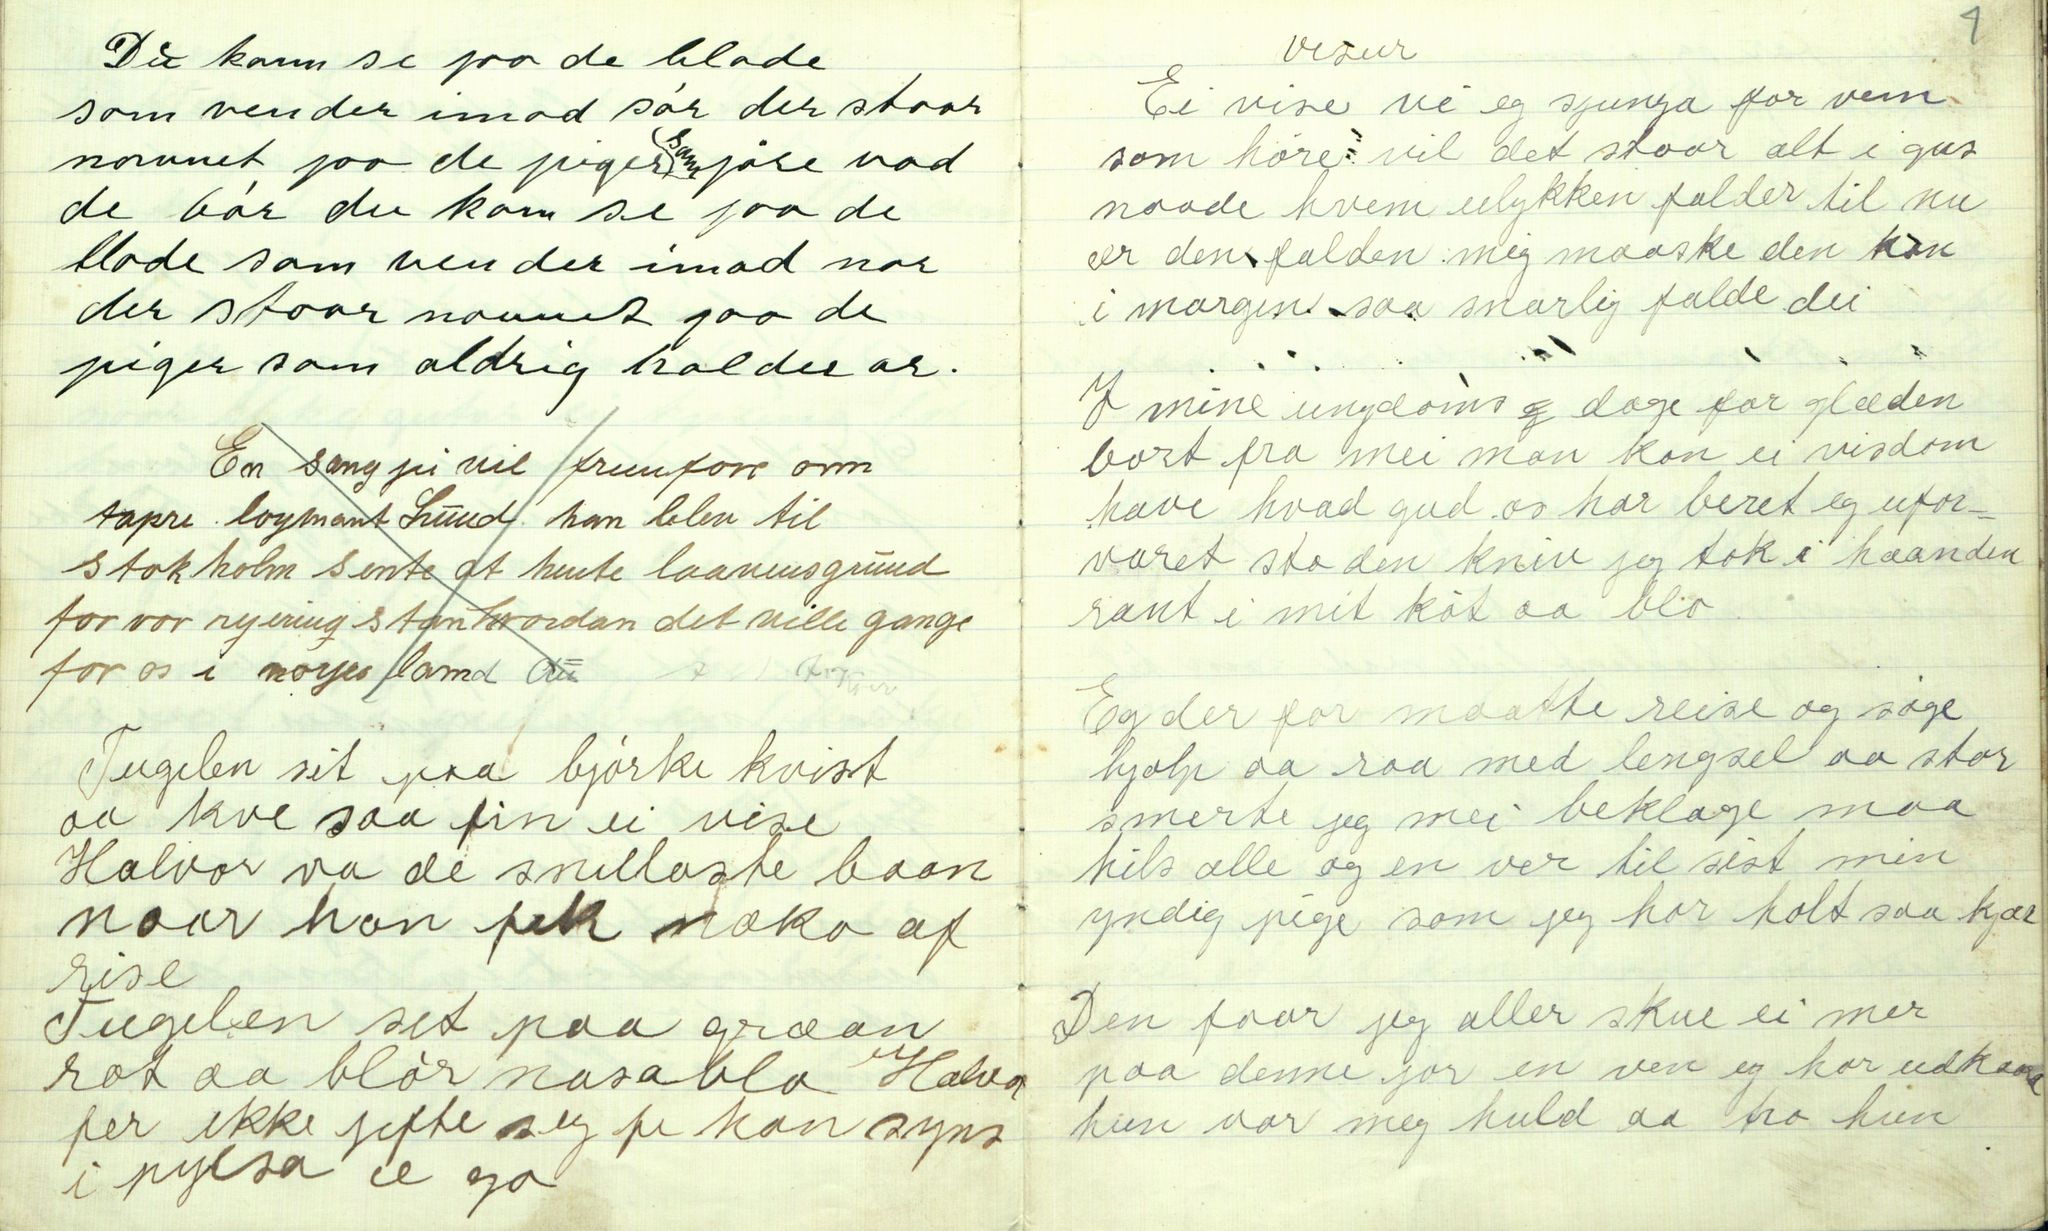 Du kann se paa de blade
som vender imod sør der staar
navnet paa de piger som jøre vad
de bør du kan se paa de
blade som vender imod nor
der staar navnet paa de
piger som aldrig holdu or.
En sang jei vil fremføre om
tapre loytnant Lund han blev til
Stokholm sente at hente laanensgrund
for vor ryering stan hvordan det ville gange
for os i norges land du
Fugelen sit paa bjørke kvist
aa kve saa fin ei vise
Halvor va de snillaste baan
naar han fek noko af
rise
Fugelen set paa græan
rot aa blør nasablo Halvor
fer ikke jifte seg fe han syns
i pylsa e go
visur
7
Ei vise vi eg sjunga for vem
som høre vil det staar alt i gus
naade hvem ulykken falder til nu
er den falden mig maaske den kan
i morgen saa snarlig falde dei
I mine ungdoms dage før glæden
bort fra mei man kan ei visdom
have hvad gud os har beret eg ufor-
varet sto den kniv jeg tok i haanden
rant i mit køt aa blo
Eg der for maatte reise og søge
hjølp aa raa med lengsel aa stor
smerte jeg mei beklage maa
hils alle og en ver til sist min
yndig pige som jeg har holt saa kjær
Den faar jeg aller skue ei mer
paa denne jor en ven eg har udkaara
hun var meg huld aa tro hun